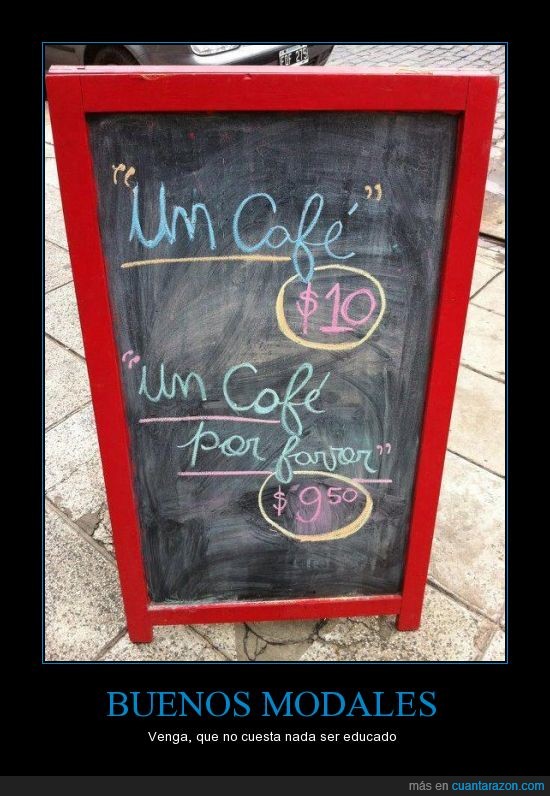 EOF 275
"Un Café"
$10
"Un Café
por favor"
$9⁵⁰
BUENOS MODALES
Venga, que no cuesta nada ser educado
más en cuantarazon.com